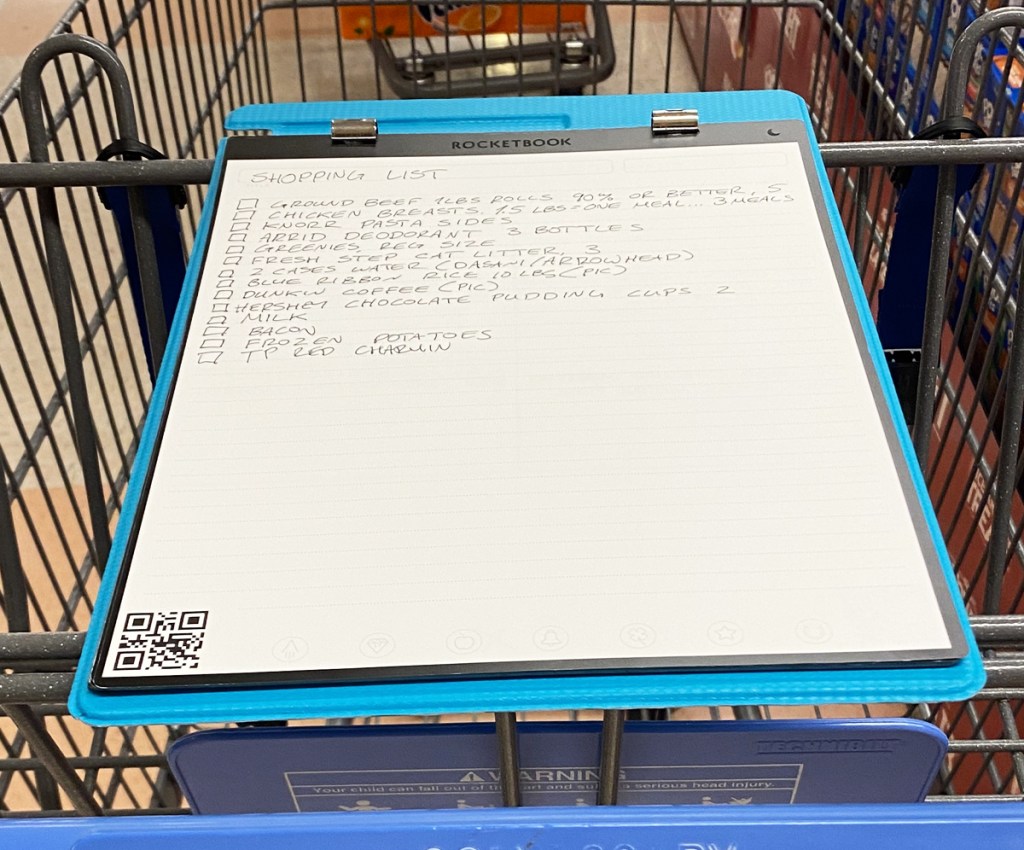 ROCKETBOOK
SHOPPING LIST
GROUND BEEF 1LBS ROLLS 90% OR BETTER, 5
CHICKEN BREASTS, 1.5 LBS=ONE MEAL... 3 MEALS
KNORR PASTA SIDES
ARRID DEODORANT 3 BOTTLES
GREENIES REG SIZE
FRESH STEP CAT LITTER, 3
2 CASES WATER (DASANI/ARROWHEAD)
BLUE RIBBON RICE 10 LBS (PIC)
DUNKIN COFFEE (PIC)
HERSHEY CHOCOLATE PUDDING CUPS 2
MILK
BACON
FROZEN POTATOES
TP RED CHARMIN
TECHNIBILT
WARNING
Your child can fall out of cart and a serious head injury.